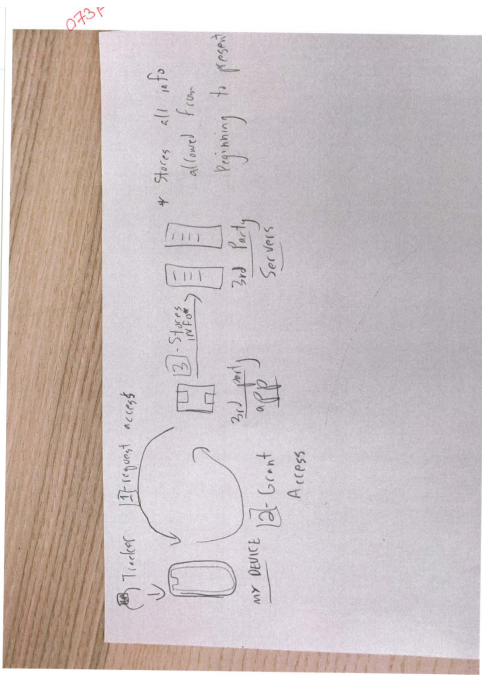 073F
Tracker
1-request access
MY DEVICE
2-Grant
Access
3rd party
app
3-Stores
INFO*
3rd Party
Servers
* Stores all info
allowed from
beginning to present